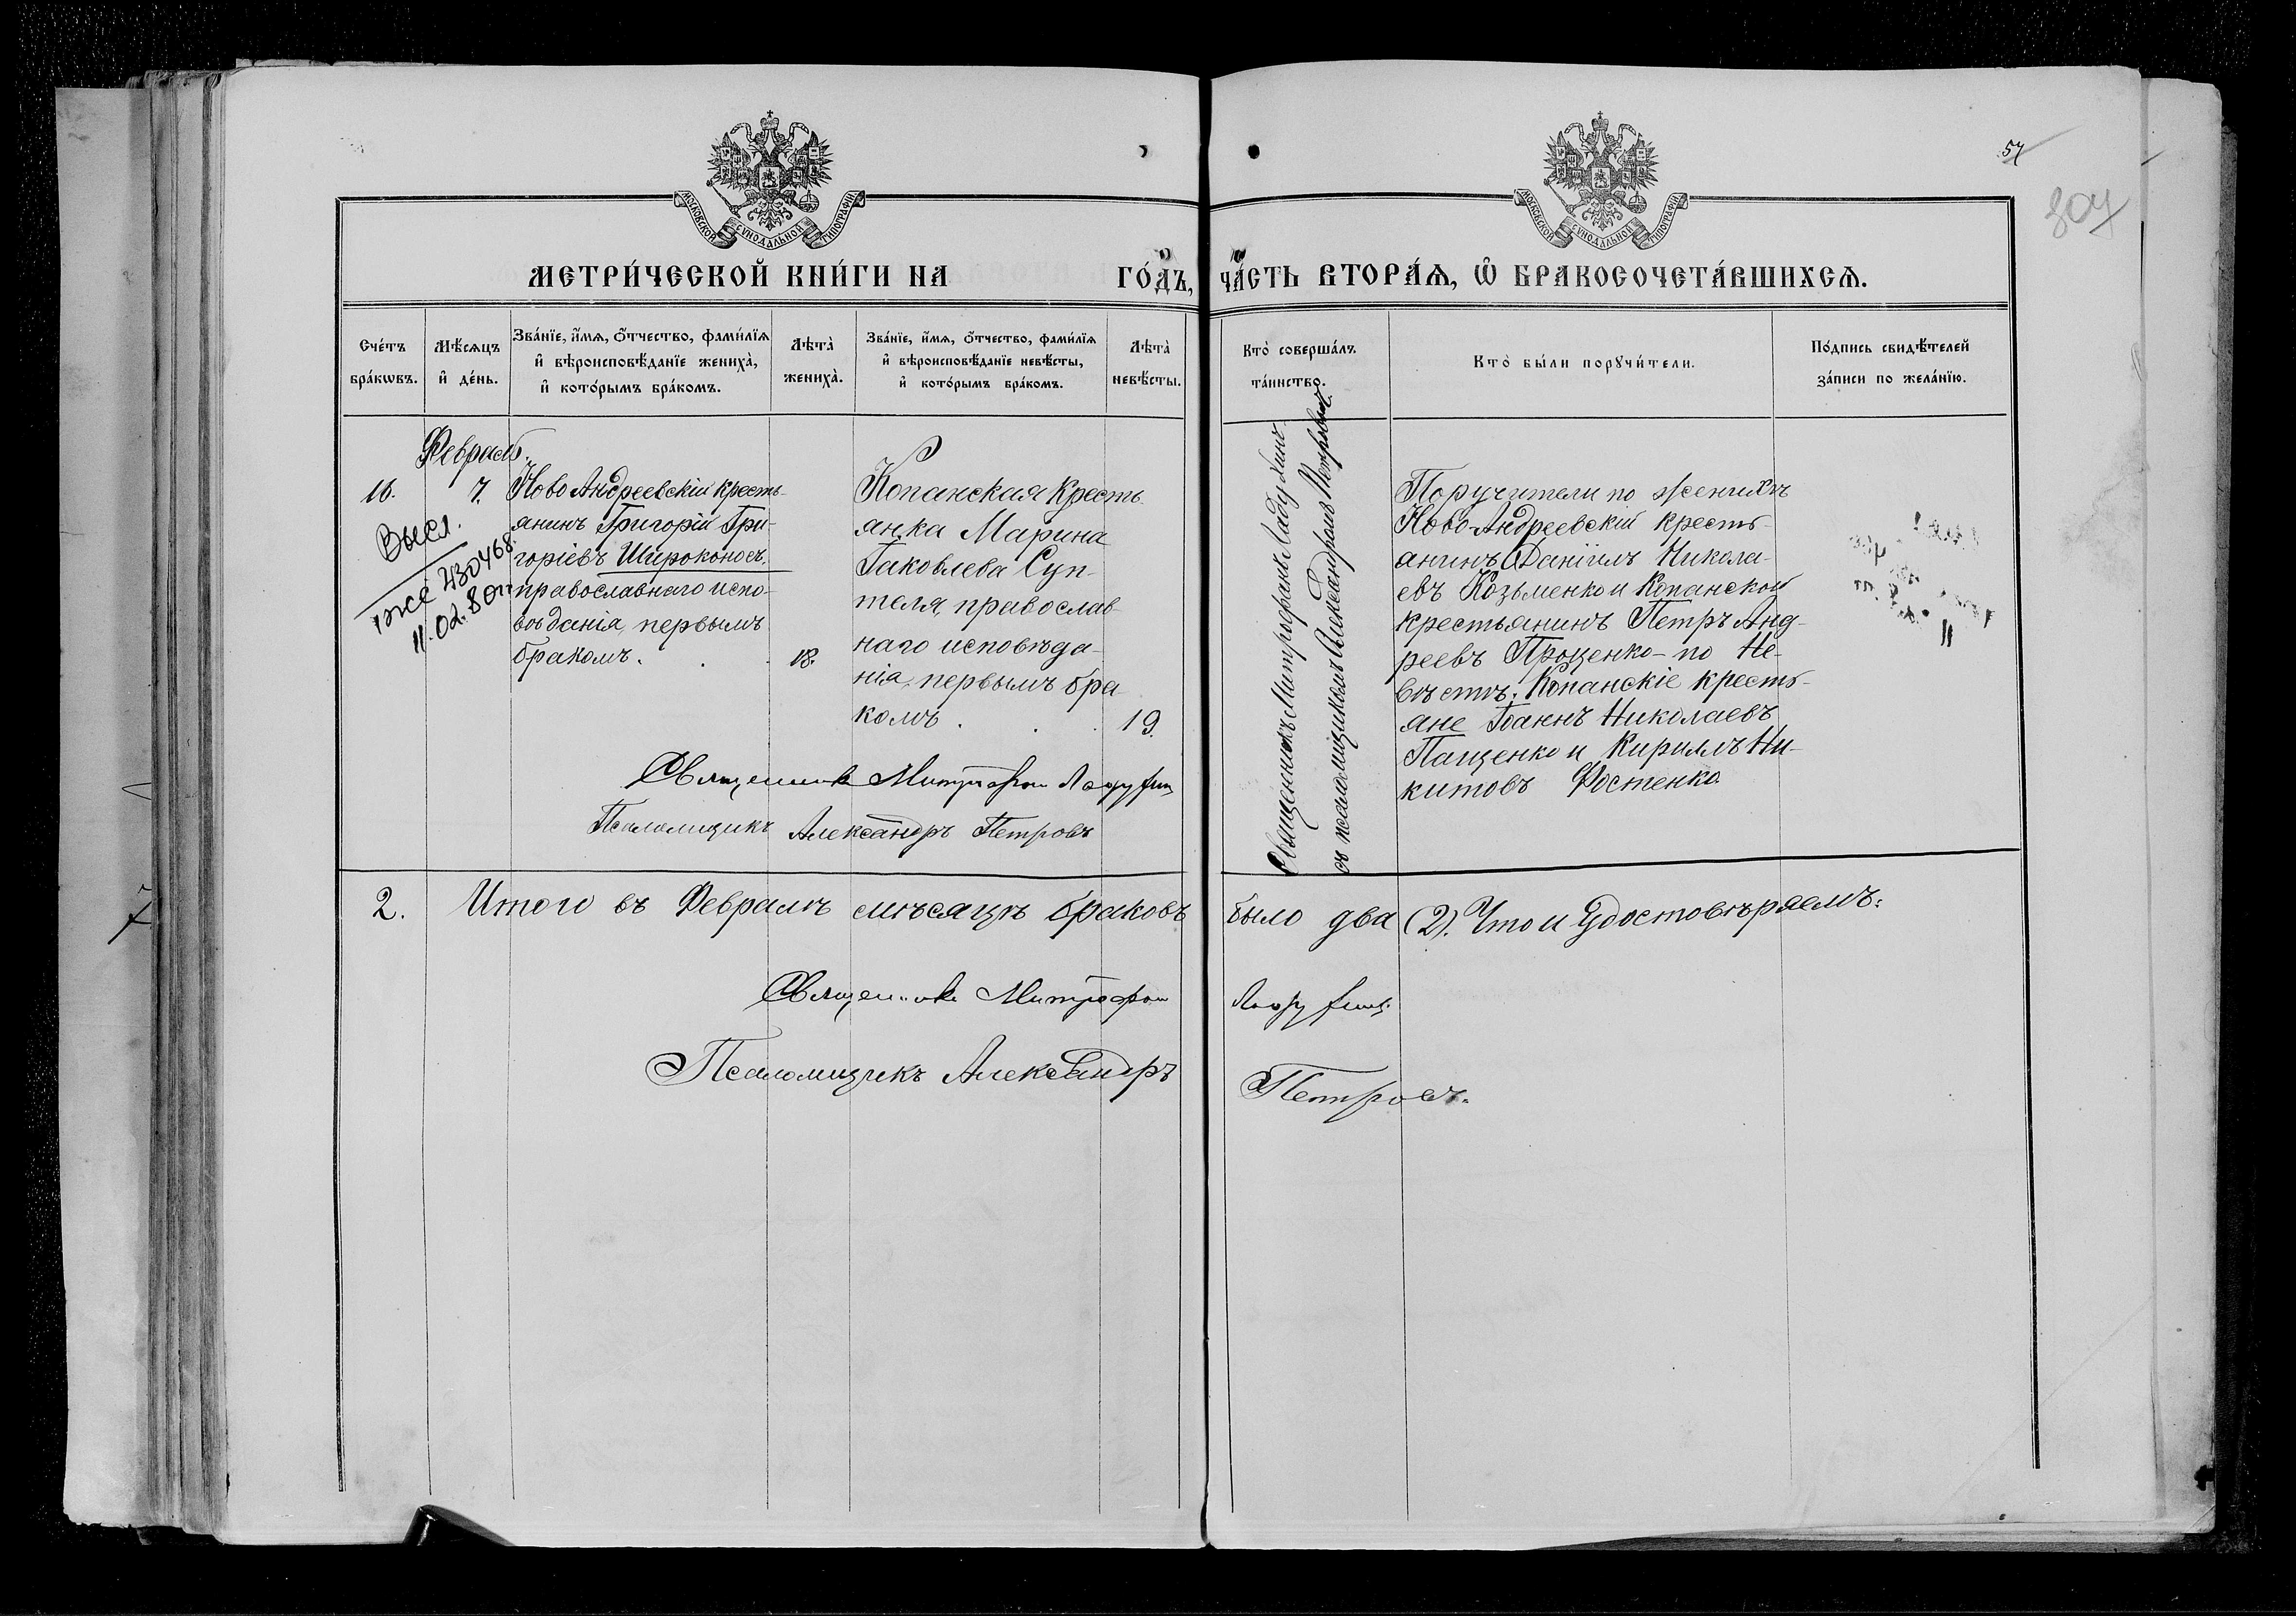 МОСКОВСКОЙ СѴНОДАЛЬНОЙ ТИПОГРАФІИ
МОСКОВСКОЙ СѴНОДАЛЬНОЙ ТИПОГРАФІИ
57
804
МЕТРИ́ЧЕСКОЙ КНИ́ГИ НА ГО́ДЪ, ЧА́СТЬ ВТОРА́Я, Ѡ БРАКОСОЧЕТА́ВШИХСЯ.
Сче́тъ бра́кѡвъ.
Мѣ́сяцъ и҆ де́нь.
Зва́нїе, и҆́мя, ѻ҆́тчество, фами́лїя
и҆ вѣроисповѣ́данїе жениха̀,
и҆ кото́рымъ бра́комъ.
Лѣта̀ жениха̀.
Зва́нїе, и҆́мя, ѻ҆́тчество, фами́лїя
и҆ вѣроисповѣ́данїе невѣ́сты,
и҆ кото́рымъ бра́комъ.
Лѣта̀ невѣ́сты.
Кто̀ соверша́лъ
та́инство.
Кто̀ бы́ли порꙋчи́тели.
По́дпись свидѣ́телей
за́писи по жела́нїю.
Февраль.
16.
7.
Высл.
11.02.80
Ново Андреевскій кресть-
янинъ Григорій Гри-
горіевъ Широконосъ,
православнаго испо-
вѣданія, первымъ
бракомъ.
18.
Копанская кресть-
янка Марина
Іаковлева Суп-
теля, православ-
наго исповѣда-
нія, первымъ бра
комъ.
19.
Священникъ Митрофанъ Ладухинъ
съ псаломщикомъ Александромъ Петровымъ.
Поручители по женихѣ
Ново-Андреевскій кресть-
янинъ Даніилъ Никола-
евъ Козьменко и Копанской
крестьянинъ Петръ Анд-
реевъ Проценко - по Не-
вѣстѣ: Копанскіе кресть-
яне Іоаннъ Николаевъ
Пащенко и Кириллъ Ни-
китовъ Фостенко
Священникъ Митрофанъ Ладухинъ
Псаломщикъ Александръ Петровъ
2. Итого въ Февралѣ мѣсяцѣ браковъ было два (2). Что и удостовѣряемъ:
Священникъ Митрофанъ Ладухинъ.
Псаломщикъ Александръ Петровъ.